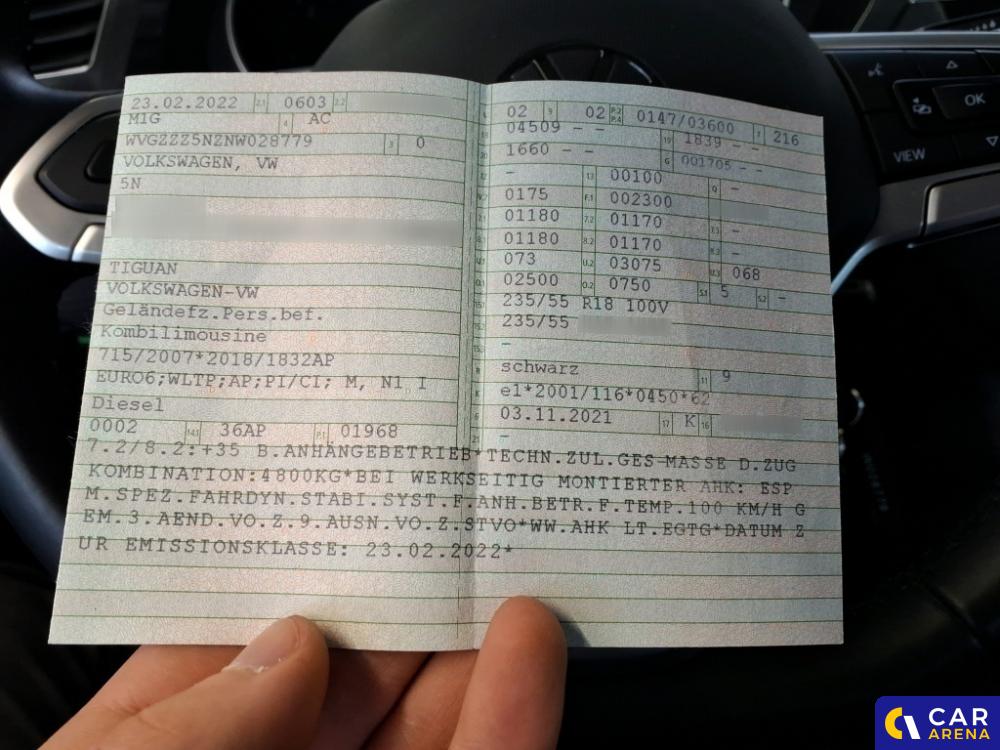 23.02.2022 2.1 0603 2.2
M1G 4 AC
WVGZZZ5NZNW028779 3 0
VOLKSWAGEN, VW
5N
TIGUAN
VOLKSWAGEN-VW
Geländefz.Pers.bef.
Kombilimousine
715/2007*2018/1832AP
EURO6;WLTP;AP;PI/CI; M, N1 I
Diesel
0002 14.1 36AP P.1 01968
02 9 02 P.2 P.4 0147/03600 T 216
04509 - - 19 1839 - -
1660 - - G 001705 - -
- 13 00100 Q -
0175 F.1 002300
01180 7.2 01170 7.3 -
01180 8.2 01170 8.3 -
073 U.2 03075 U.3 068
02500 O.2 0750 S.1 5 S.2 -
235/55 R18 100V
235/55
-
schwarz 11 9
e1*2001/116*0450*62
03.11.2021 17 K 16
-
7.2/8.2:+35 B.ANHÄNGEBETRIEB*TECHN.ZUL.GES-MASSE D.ZUG
KOMBINATION:4800KG*BEI WERKSEITIG MONTIERTER AHK: ESP
M.SPEZ.FAHRDYN.STABI.SYST.F.ANH.BETR.F.TEMP.100 KM/H G
EM.3.AEND.VO.Z.9.AUSN.VO.Z.STVO*WW.AHK LT.EGTG*DATUM Z
UR EMISSIONSKLASSE: 23.02.2022*
OK
VIEW
CAR
ARENA